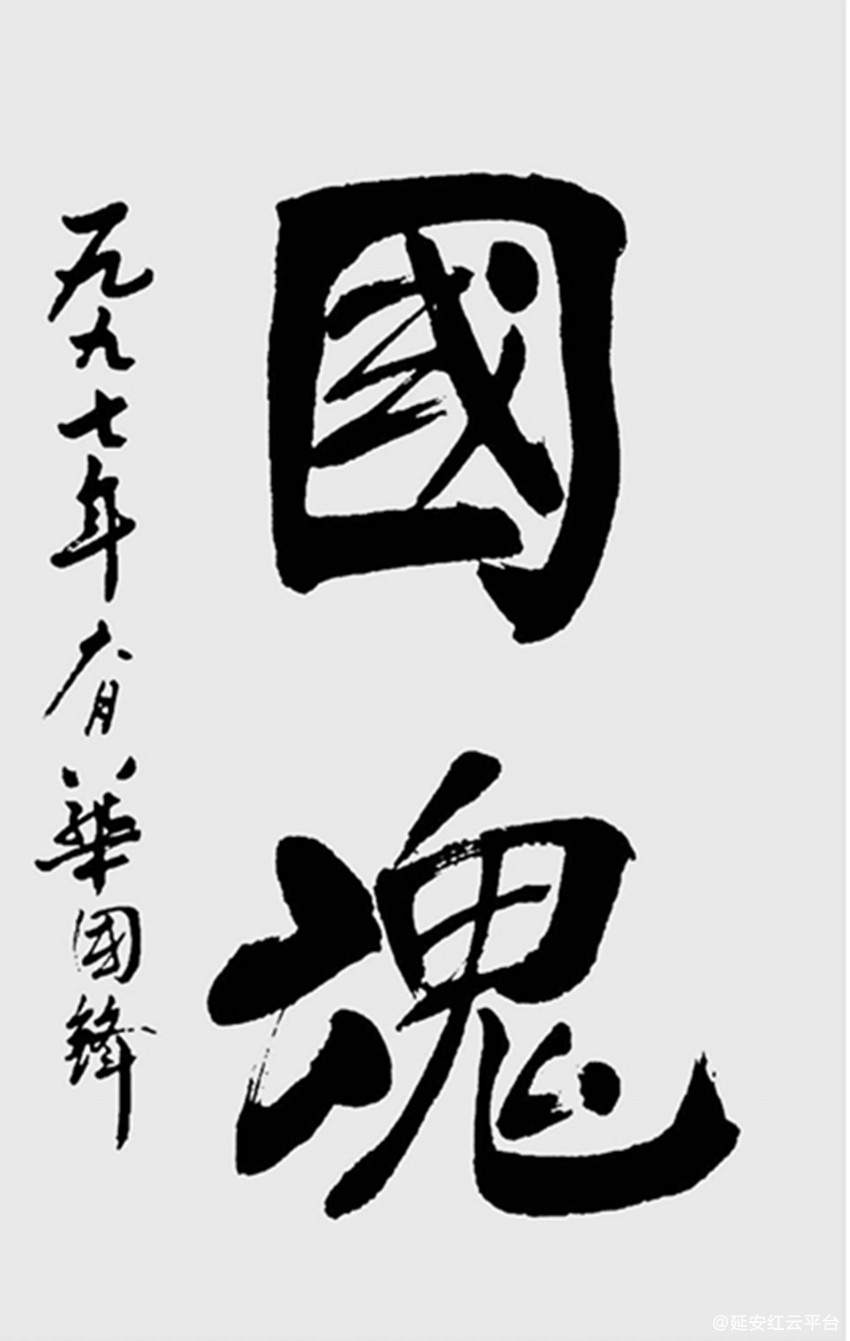 國魂
一九九七年六月 華國鋒
@延安红云平台